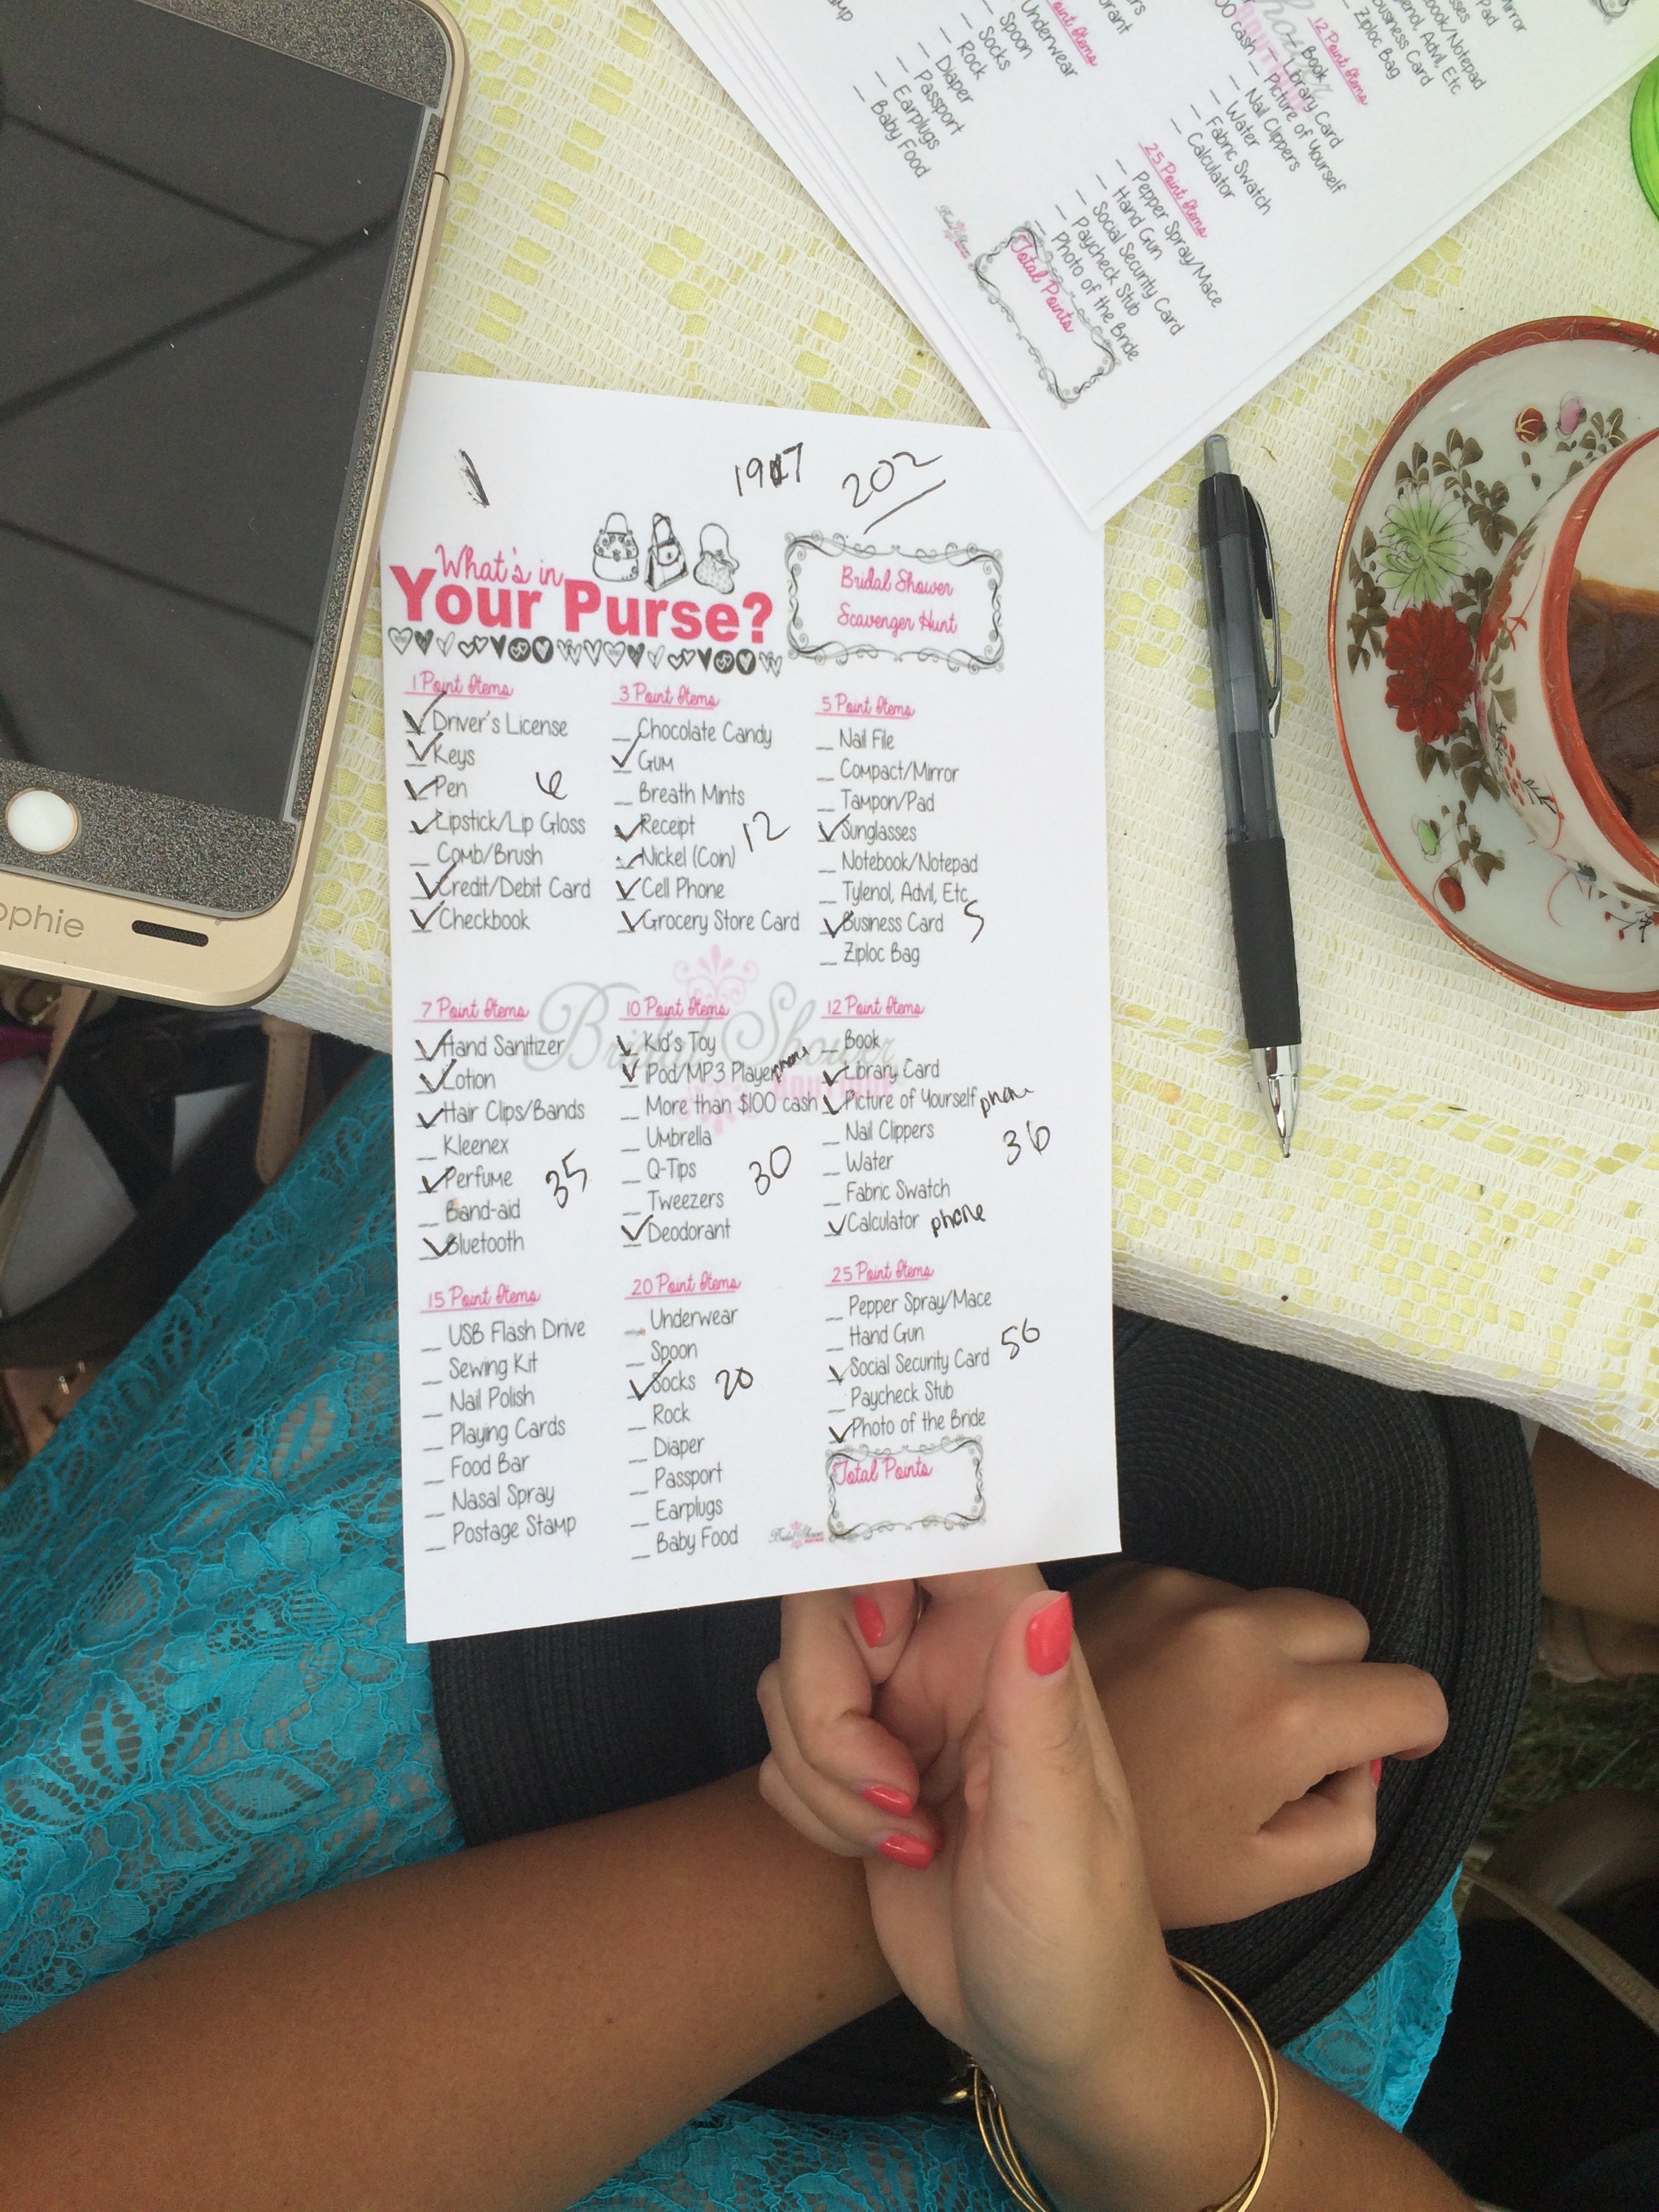 phie
mp
Spoon
Underwear
Socks
Rock
Diaper
Passport
Earplugs
Baby Food
12 Point Items
Book
Library Card
Picture of Yourself
Nail Clippers
Water
Fabric Swatch
Calculator
Business Card
Ziploc Bag
25 Point Items
Pepper Spray/Mace
Hand Gun
Social Security Card
Paycheck Stub
Photo of the Bride
Total Points
202
What's in
Your Purse?
Bridal Shower
Scavenger Hunt
1 Point Items
Driver's License
Keys
Pen 6
Lipstick/Lip Gloss
Comb/Brush
Credit/Debit Card
Checkbook
3 Point Items
Chocolate Candy
Gum
Breath Mints
Receipt 12
Nickel (Coin)
Cell Phone
Grocery Store Card
5 Point Items
Nail File
Compact/Mirror
Tampon/Pad
Sunglasses
Notebook/Notepad
Tylenol, Advil, Etc
Business Card 5
Ziploc Bag
Bridal Shower
7 Point Items
Hand Sanitizer
Lotion
Hair Clips/Bands
Kleenex
Perfume 35
Band-aid
Bluetooth
10 Point Items
Kid's Toy
iPod/MP3 Player phone
More than $100 cash
Umbrella
Q-Tips 30
Tweezers
Deodorant
12 Point Items
Book
Library Card
Picture of Yourself phone
Nail Clippers 36
Water
Fabric Swatch
Calculator phone
15 Point Items
USB Flash Drive
Sewing Kit
Nail Polish
Playing Cards
Food Bar
Nasal Spray
Postage Stamp
20 Point Items
Underwear
Spoon
Socks 20
Rock
Diaper
Passport
Earplugs
Baby Food
25 Point Items
Pepper Spray/Mace
Hand Gun
Social Security Card 50
Paycheck Stub
Photo of the Bride
Total Points
Bridal Shower